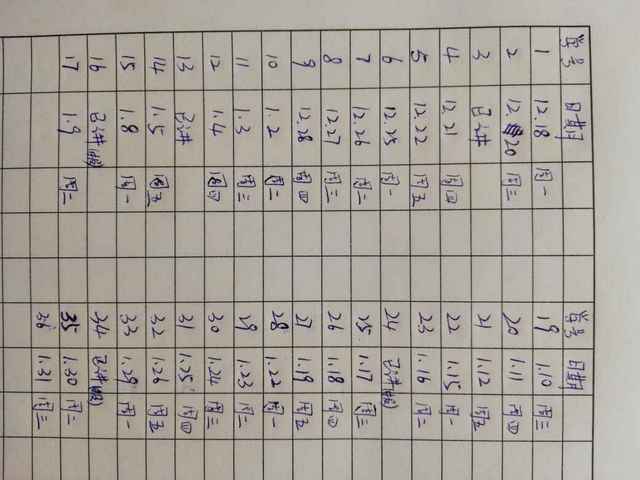 学号 日期 学号 日期
1 12.18 周一 19 1.10 周三
2 12.20 周三 20 1.11 周四
3 已讲 21 1.12 周五
4 12.21 周四 22 1.15 周一
5 12.22 周五 23 1.16 周二
6 12.25 周一 24 已讲
7 12.26 周二 25 1.17 周三
8 12.27 周三 26 1.18 周四
9 12.28 周四 27 1.19 周五
10 1.2 周二 28 1.22 周一
11 1.3 周三 29 1.23 周二
12 1.4 周四 30 1.24 周三
13 已讲 31 1.25 周四
14 1.5 周五 32 1.26 周五
15 1.8 周一 33 1.29 周一
16 已讲 34 已讲
17 1.9 周二 35 1.30 周二
36 1.31 周三